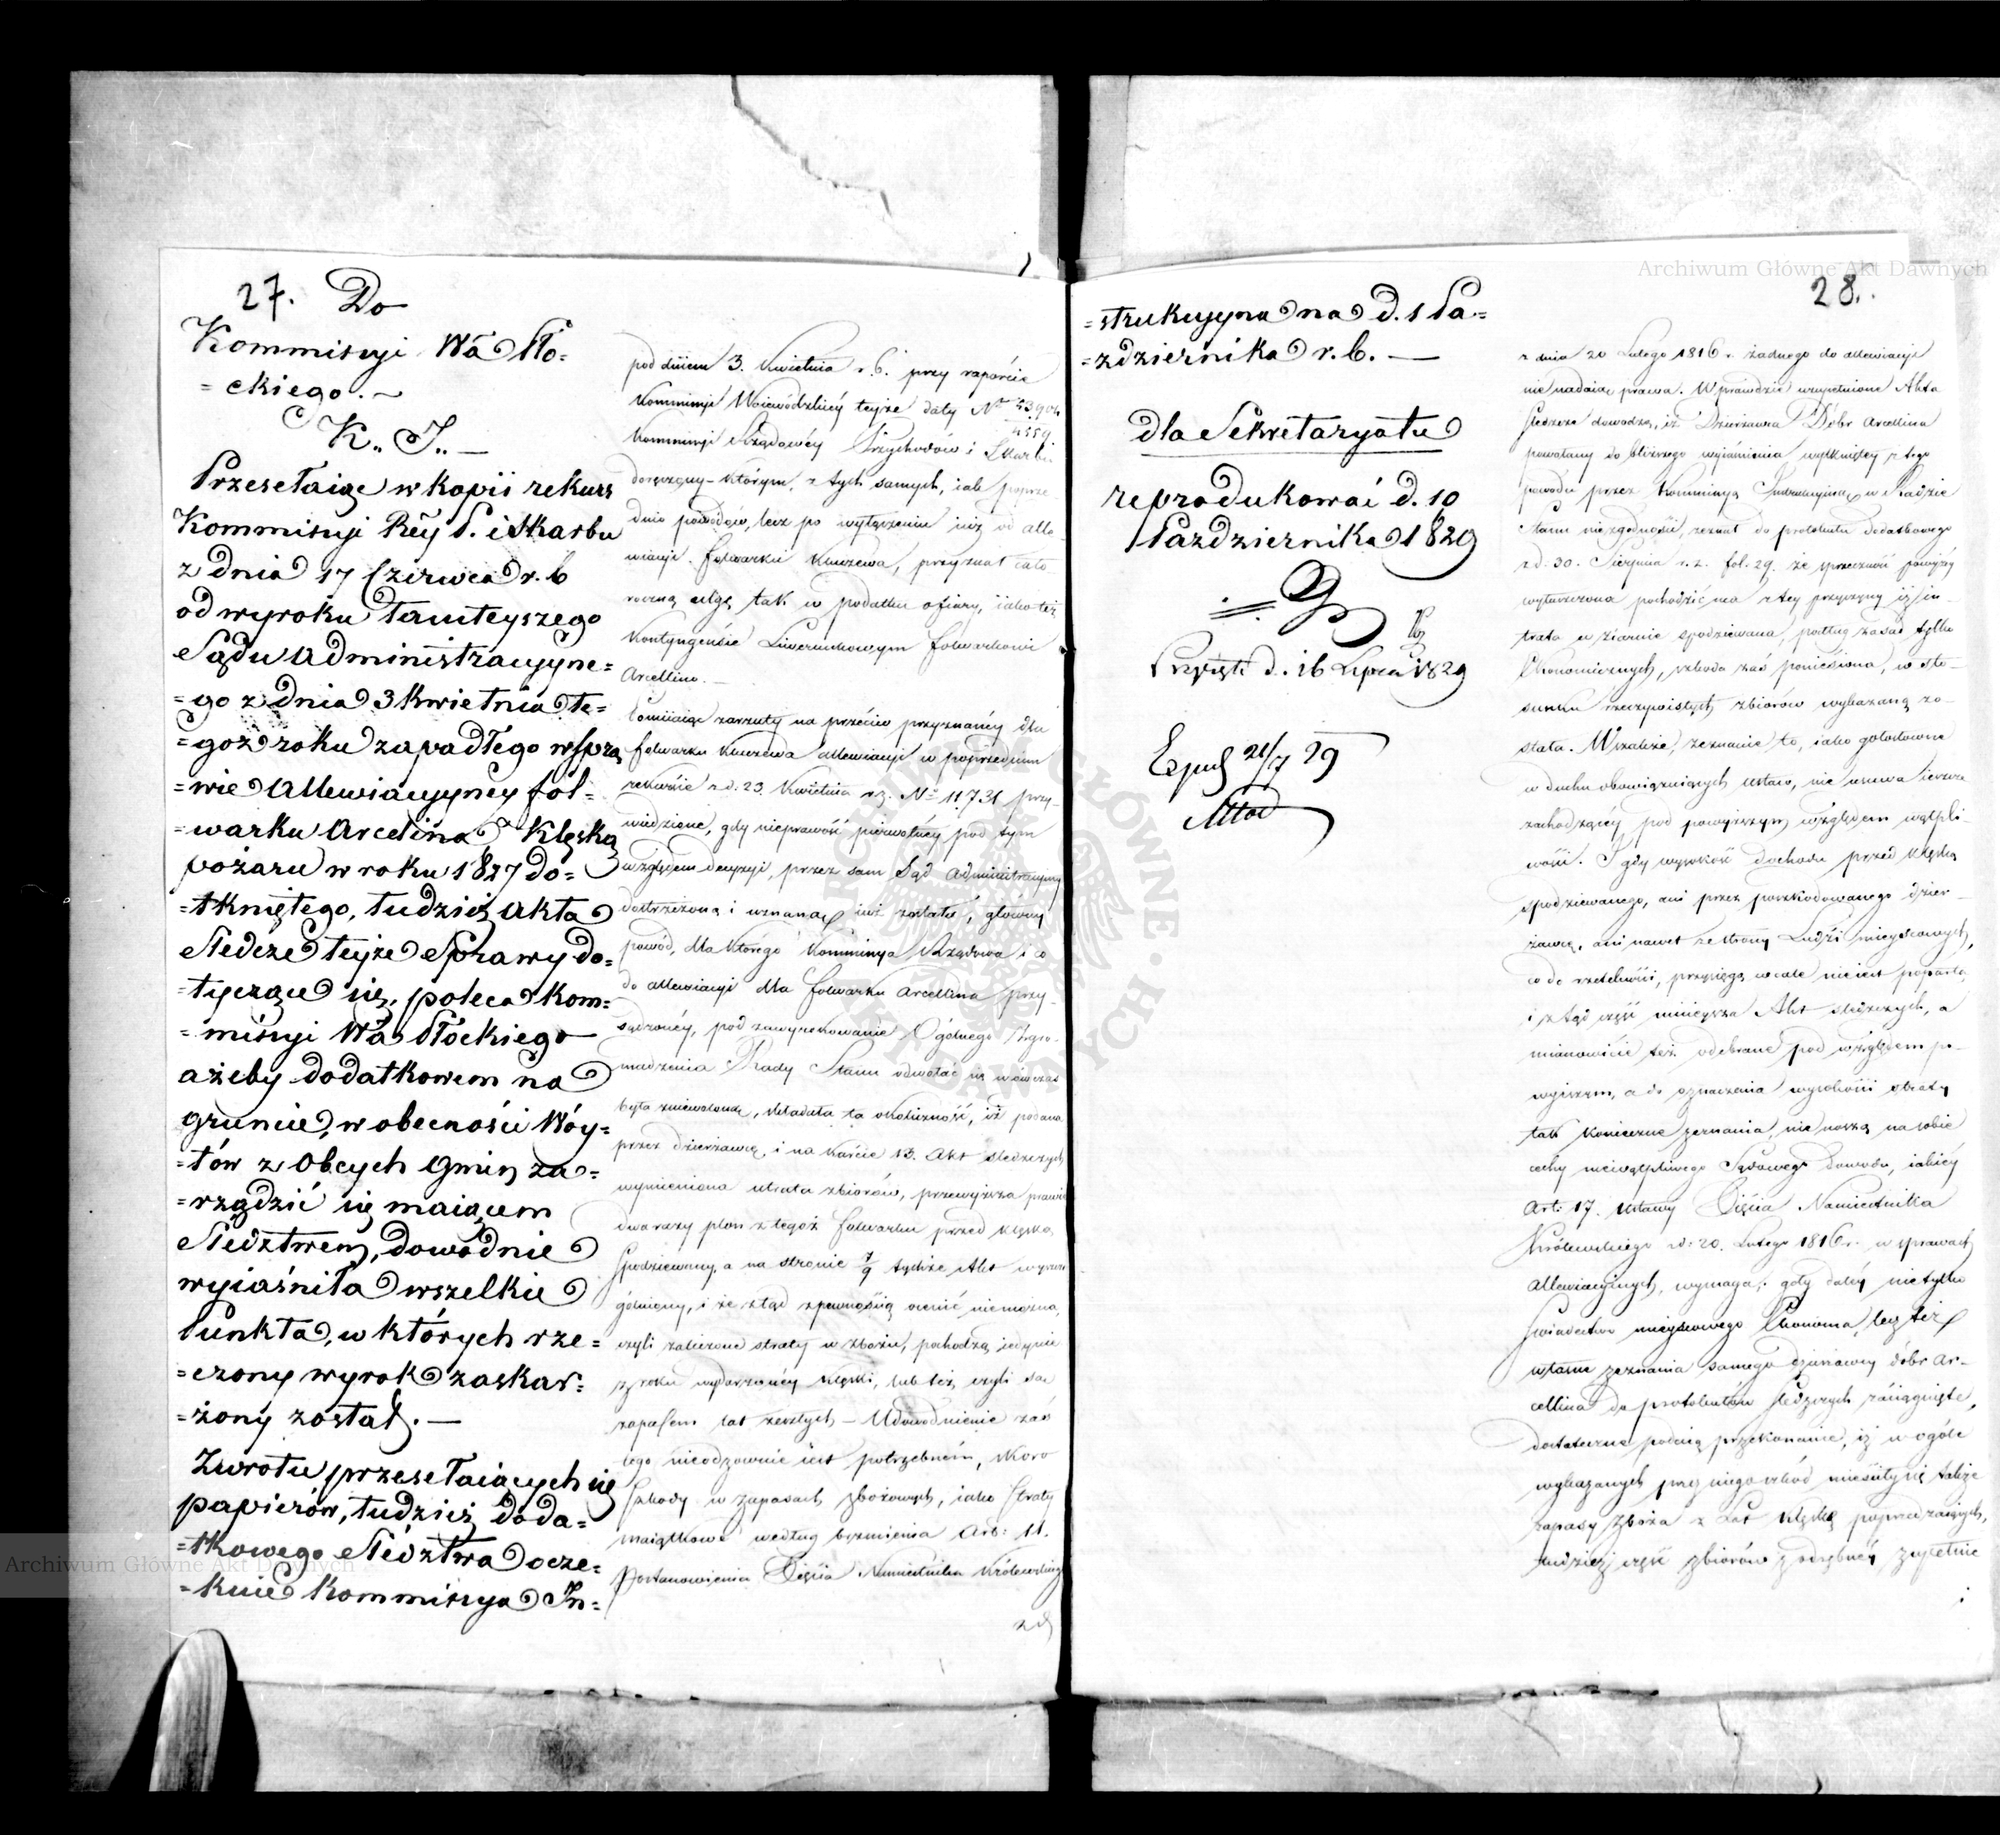 27. Do
Kommissyi Wa Pło=
=ckiego. —
K. I. —
Przesełaiąc w kopii rekurs
Kommissyi Rey P. i Skarbu
z dnia 17 Czerwca r. b
od wyroku Tamteyszego
Sądu Administracyyne=
=go z dnia 3 Kwietnia te=
=goż roku zapadłego w spra
=wie Allewiacyyney fol=
=warku Arcelina Klęską
pożaru w roku 1827 do=
=tkniętego, tudzież Akta
Śledcze teyże Sprawy do=
=tyczące się, poleca Kom=
=missyi Wa Płockiego
ażeby dodatkowem na
gruncie, w obecności Wóy=
=tów z Obcych Gmin za=
=rządzić się maiącem
Śledztwem, dowodnie
wyiaśniła wszelkie
Punkta, w których rze=
=czony wyrok zaskar=
=żony został. —
Zwrotu przesełaiących się
papierów, tudzież doda=
=tkowego Śledztwa ocze=
=kuie Kommissya In=
pod dniem 3. Kwietnia r. b. przy raporcie
Kommissyi Woiewódzkiéy teyże daty No 43904
4559
Kommissyi Rządowéy Przychodów i Skarbu
doręczony – którym, z tych samych, iak poprze-
dnio powodów, lecz po wyłączeniu iuż od alle
wiacyi folwarku Kuczewa, przyznał cało
roczną ulgę tak w podatku ofiary, iako też
Kontyngensie Liwerunkowym folwarkowi
Arcellino. —
Pomiiaiąc zarzuty na przeciw przyznanéy dla
folwarku Kuczewa allewiacyi w poprzednim
rekursie z d. 23. Kwietnia r. z. No 11731 przy-
wiedzione, gdy nieprawość pierwotnéy pod tym
względem decyzyi, przez sam Sąd Administracyiny
dostrzeżoną i uznaną iuż została, główny
powód, dla którego Kommissya Rządowa i co
do allewiacyi dla folwarku Arcellina przy-
sądzonéy, pod zawyrokowanie Ogólnego Zgro-
madzenia Rady Stanu odwołać się wówczas
była zniewoloną, składała ta okoliczność, iż podana
przez dzierżawcę, i na karcie 13. Akt śledczych
wymieniona utrata zbiorów, przewyższa prawie
dwa razy plon z tegoż folwarku przed klęską
spodziewany, a na stronie 7/9 tychże Akt wyszcze
gólniony, i że ztąd z pewnością ocenić niemożna,
czyli zaliczone straty w zbożu, pochodzą iedynie
z roku wydarzonéy klęski, lub też, czyli są
zapasem lat zeszłych – Udowodnienie zaś
tego nieodzownie iest potrzebném, skoro
szkody w zapasach zbożowych, iako straty
maiątkowe według brzmienia Art: 11.
Postanowienia Xięcia Namiestnika Królewskiego
z d.
28.
=strukcyyna na d. 1 Pa=
=ździernika r. b. —
dla Sekretaryatu
reprodukować d. 10
Października 1829
Przyięto d. 16 Lipca 1829
Exped 21/7 29
z dnia 20 Lutego 1816 r. żadnego do allewiacyi
nie nadaią prawa. Wprawdzie uzupełnione Akta
śledcze dowodzą, iż Dzierżawca Dóbr Arcellina
powołany do bliższego wyiaśnienia wynikłéy z tego
powodu przez Kommissyą Instrukcyiną w Radzie
Stanu niezgodności, zeznał do protokułu dodatkowego
z d. 30. Sierpnia r. z. fol. 29. że sprzeczność powyżéy
wytłuszczona pochodzić ma z tey przyczyny iż in-
trata w ziarnie spodziewana, podług zasad tylko
Ekonomicznych, szkoda zaś poniesiona, w sto-
sunku rzeczywistych zbiorów wykazaną zo-
stała. Wszakże, zeznanie to, iako gołosłowne
w duchu obowiązuiących ustaw, nie usuwa ieszcze
zachodzącéy pod powyższym względem wątpli-
wości. I gdy wysokość dochodu przed klęską
spodziewanego, ani przez poszkodowanego dzier
żawcę, ani nawet ze strony Ludzi mieyscowych,
co do rzetelności, przysięgą wcale nie iest poparta,
i ztąd część ninieysza Akt śledczych, a
mianowicie też odebrane pod względem po-
wyższym, a do oznaczenia wysokości straty
tak konieczne zeznania, nie noszą na sobie
cechy niewątpliwego Sądowego dowodu, iakiéy
Art: 17. Ustawy Xięcia Namiestnika
Królewskiego z d: 20. Lutego 1816 r. w sprawach
Allewiacyinych, wymaga; gdy daléy nie tylko
świadectwo mieyscowego Ekonoma, lecz też
własne zeznania samego dzierżawcy dóbr Ar-
cellina do protokułów śledczych zaciągnięte,
dostateczne podaią przekonanie, iż w ogóle
wykazanych przez niego szkód mieściły się także
zapasy zboża z lat klęskę poprzedzaiących,
tudzież część zbiorów z odrębnéy zupełnie
i